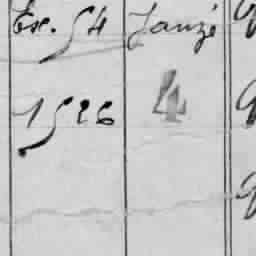 Ex. 54 Janzé
1526 4